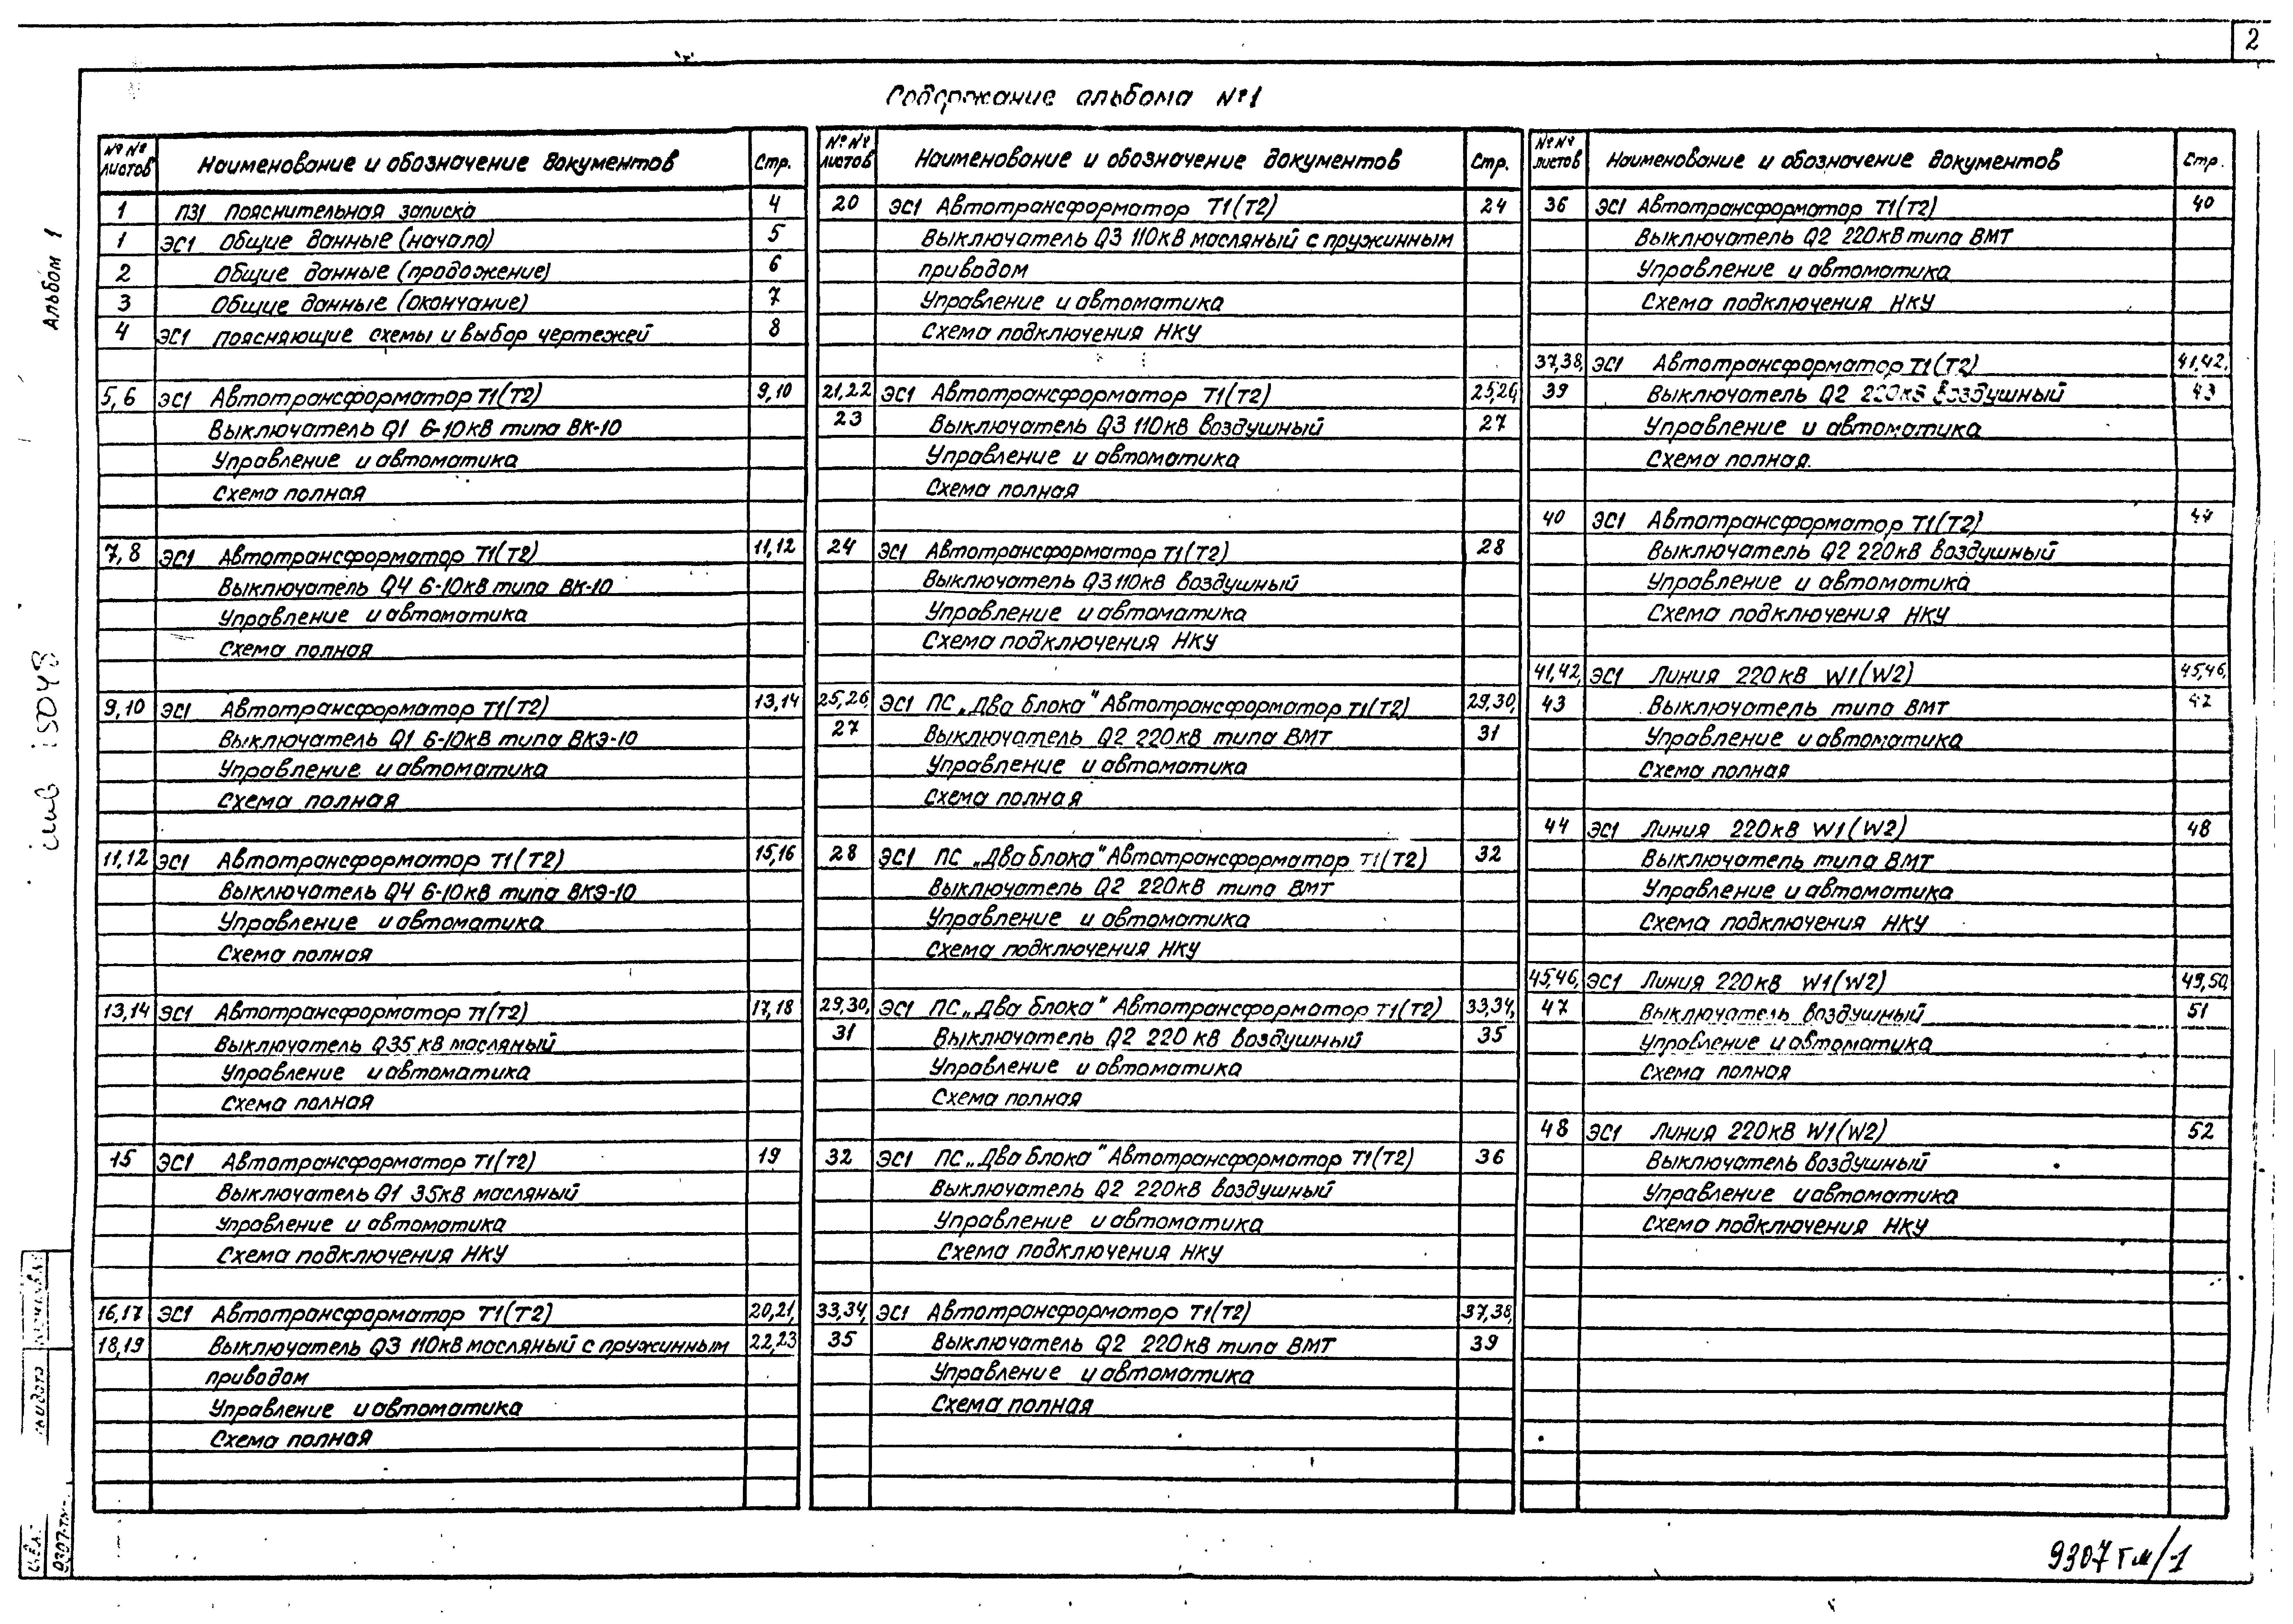 2
Содержание альбома №1
Альбом 1
№ №
листов
Наименование и обозначение документов
Стр.
1 ПЗ1 пояснительная записка 4
1 ЭС1 Общие данные (начало) 5
2 Общие данные (продожение) 6
3 Общие данные (окончание) 7
4 ЭС1 поясняющие схемы и выбор чертежей 8
5,6 ЭС1 Автотрансформатор Т1(Т2) 9,10
Выключатель Q1 6-10кВ типа ВК-10
Управление и автоматика
Схема полная
7,8 ЭС1 Автотрансформатор Т1(Т2) 11,12
Выключатель Q4 6-10кВ типа ВК-10
Управление и автоматика
Схема полная
9,10 ЭС1 Автотрансформатор Т1(Т2) 13,14
Выключатель Q1 6-10кВ типа ВКЭ-10
Управление и автоматика
Схема полная
11,12 ЭС1 Автотрансформатор Т1(Т2) 15,16
Выключатель Q4 6-10кВ типа ВКЭ-10
Управление и автоматика
Схема полная
13,14 ЭС1 Автотрансформатор Т1(Т2) 17,18
Выключатель Q35 кВ масляный
Управление и автоматика
Схема полная
15 ЭС1 Автотрансформатор Т1(Т2) 19
Выключатель Q1 35кВ масляный
Управление и автоматика
Схема подключения НКУ
16,17 ЭС1 Автотрансформатор Т1(Т2) 20,21,
18,19 Выключатель Q3 110кВ масляный с пружинным 22,23
приводом
Управление и автоматика
Схема полная
№ №
листов
Наименование и обозначение документов
Стр.
20 ЭС1 Автотрансформатор Т1(Т2) 24
Выключатель Q3 110кВ масляный с пружинным
приводом
Управление и автоматика
Схема подключения НКУ
21,22 ЭС1 Автотрансформатор Т1(Т2) 25,26,
23 Выключатель Q3 110кВ воздушный 27
Управление и автоматика
Схема полная
24 ЭС1 Автотрансформатор Т1(Т2) 28
Выключатель Q3 110кВ воздушный
Управление и автоматика
Схема подключения НКУ
25,26, ЭС1 ПС „Два блока" Автотрансформатор Т1(Т2) 29,30,
27 Выключатель Q2 220кВ типа ВМТ 31
Управление и автоматика
Схема полная
28 ЭС1 ПС „Два блока" Автотрансформатор Т1(Т2) 32
Выключатель Q2 220кВ типа ВМТ
Управление и автоматика
Схема подключения НКУ
29,30, ЭС1 ПС „Два блока" Автотрансформатор Т1(Т2) 33,34,
31 Выключатель Q2 220 кВ воздушный 35
Управление и автоматика
Схема полная
32 ЭС1 ПС „Два блока" Автотрансформатор Т1(Т2) 36
Выключатель Q2 220кВ воздушный
Управление и автоматика
Схема подключения НКУ
33,34, ЭС1 Автотрансформатор Т1(Т2) 37,38,
35 Выключатель Q2 220кВ типа ВМТ 39
Управление и автоматика
Схема полная
№ №
листов
Наименование и обозначение документов
Стр.
36 ЭС1 Автотрансформатор Т1(Т2) 40
Выключатель Q2 220кВ типа ВМТ
Управление и автоматика
Схема подключения НКУ
37,38, ЭС1 Автотрансформатор Т1(Т2) 41,42,
39 Выключатель Q2 220кВ воздушный 43
Управление и автоматика
Схема полная.
40 ЭС1 Автотрансформатор Т1(Т2) 44
Выключатель Q2 220кВ воздушный
Управление и автоматика
Схема подключения НКУ
41,42, ЭС1 Линия 220кВ W1(W2) 45,46,
43 Выключатель типа ВМТ 47
Управление и автоматика
Схема полная
44 ЭС1 Линия 220кВ W1(W2) 48
Выключатель типа ВМТ
Управление и автоматика
Схема подключения НКУ
45,46, ЭС1 Линия 220кВ W1(W2) 49,50,
47 Выключатель воздушный 51
Управление и автоматика
Схема полная
48 ЭС1 Линия 220кВ W1(W2) 52
Выключатель воздушный
Управление и автоматика
Схема подключения НКУ
9307тм/-1